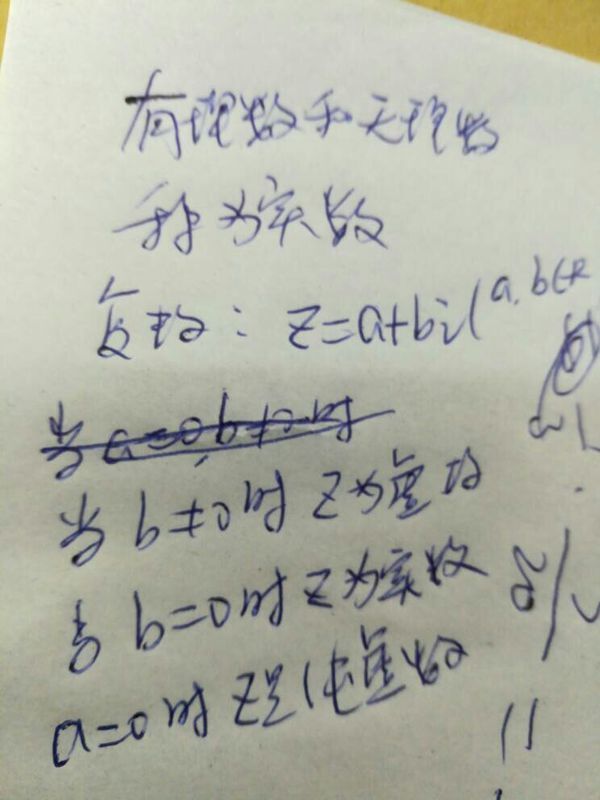 有理数和无理数
称为实数
复数：z=a+bi(a,b∈R
当a=0,b≠0时
当b≠0时z为虚数
当b=0时z为实数
a=0时z是纯虚数